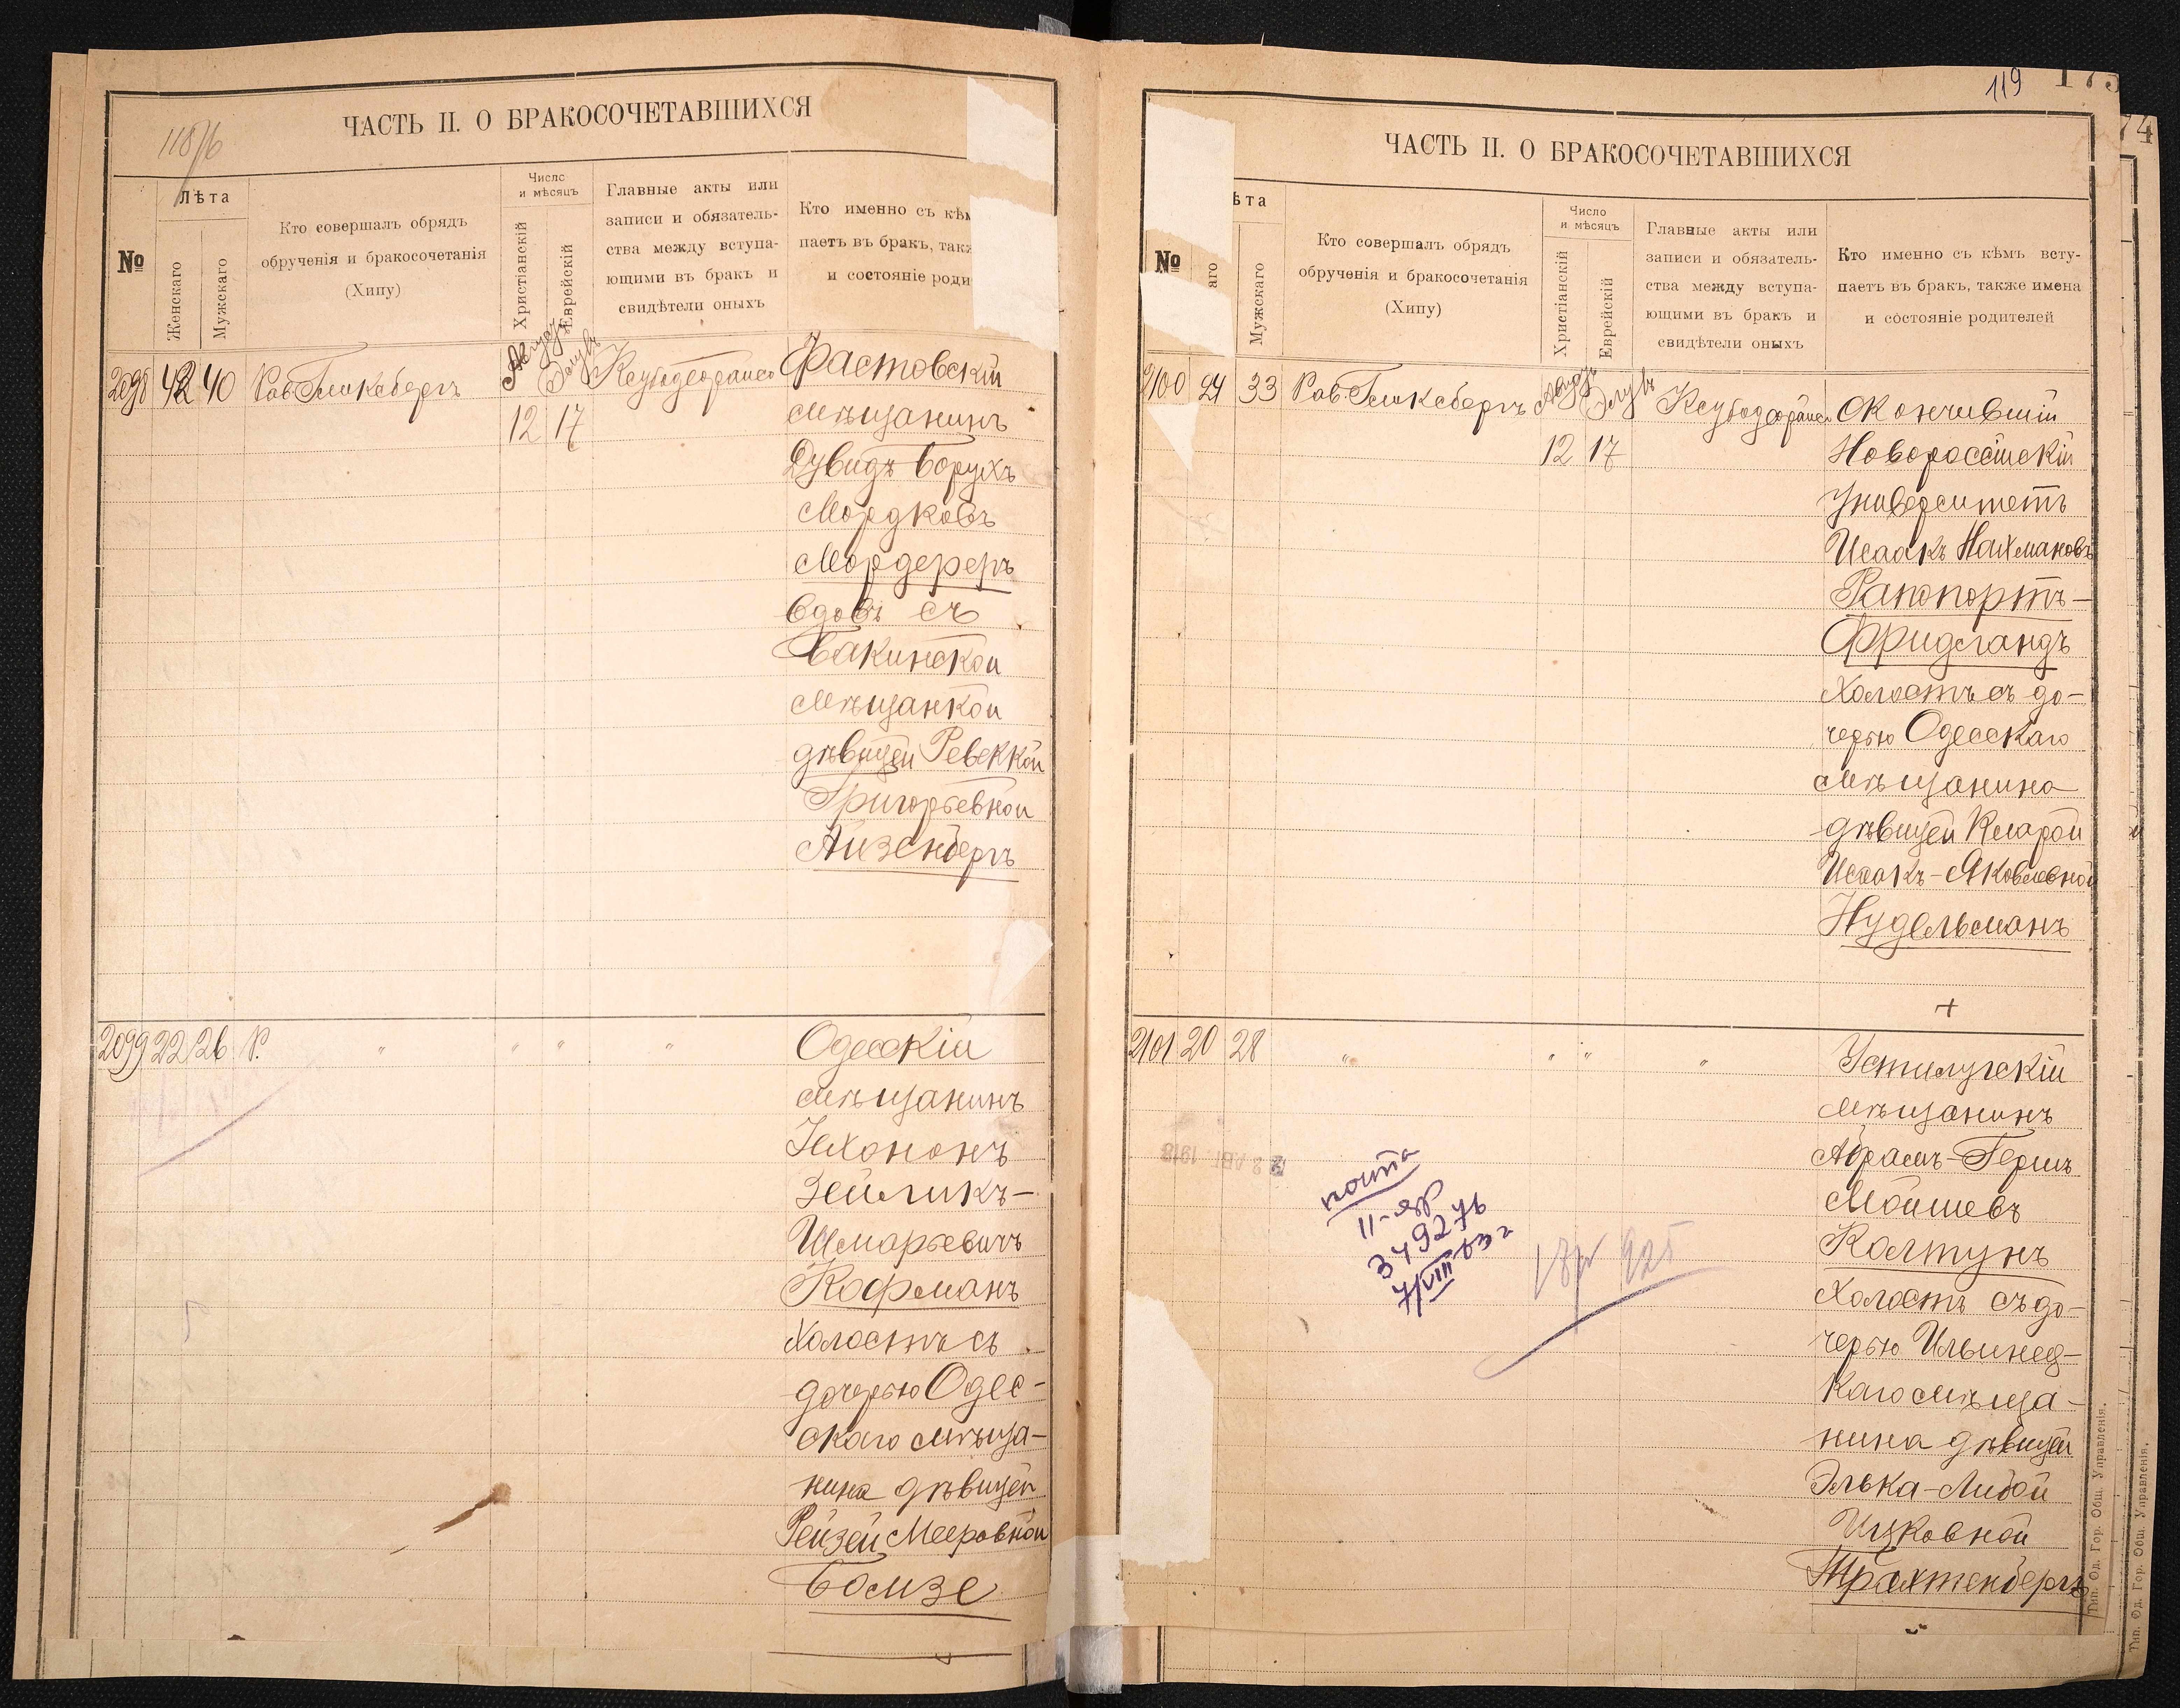 ЧАСТЬ II. О БРАКОСОЧЕТАВШИХСЯ
118/6
№
Лѣта
Женскаго
Мужскаго
Кто совершалъ обрядъ
обрученія и бракосочетанія
(Хипу)
Число
и мѣсяцъ
Христіанскій
Еврейскій
Главные акты или
записи и обязатель-
ства между вступа-
ющими въ бракъ и
свидѣтели оныхъ
Кто именно съ кѣм
паетъ въ бракъ, такж
и состояніе роди
2098 42 40 Рав. Гликсбергъ Августъ Элулъ
12 17
Фастовскій
мѣщанинъ
Дувидъ-Борухъ
Мордковъ
Мордереръ
вдовъ съ
Бакинской
мѣщанкой
дѣвицей Ревеккой
Григорьевной
Айзенбергъ
2099 22 26 Р. " " " "
Одесскій
мѣщанинъ
Зейликъ-
Шмарьевичъ
Кофманъ
холостъ съ
дочерью Одес-
скаго мѣща-
нина дѣвицей
Рейзей Мееровной
Бомзе
119
ЧАСТЬ II. О БРАКОСОЧЕТАВШИХСЯ
№
ѣта
аго
Мужскаго
Кто совершалъ обрядъ
обрученія и бракосочетанія
(Хипу)
Число
и мѣсяцъ
Христіанскій
Еврейскій
Главные акты или
записи и обязатель-
ства между вступа-
ющими въ бракъ и
свидѣтели оныхъ
Кто именно съ кѣмъ всту-
паетъ въ бракъ, также имена
и состояніе родителей
2100 24 33 Рав. Гликсбергъ Августъ Элулъ
12 17
Окончившій
Новороссійскій
Университетъ
Исаакъ Нахмановъ
Рапопортъ-
Фридландъ
холостъ съ до-
черью Одесскаго
мѣщанина
дѣвицей Кларой
Исаакъ-Яковлевной
Нудельманъ
+
2101 20 28 " " " "
Устилугскій
мѣщанинъ
Абрамъ-Гершъ
Мошневъ
Колтунъ
холостъ съ до-
черью Ильинец-
каго мѣща-
нина дѣвицей
Элька-Либой
Ицковной
Трахтенбергъ
почта
34927
7/VIII 63 г
925
Тип. Од. Гор. Общ. Управленія.
Тип. Од. Гор. Общ. Управленія.
74